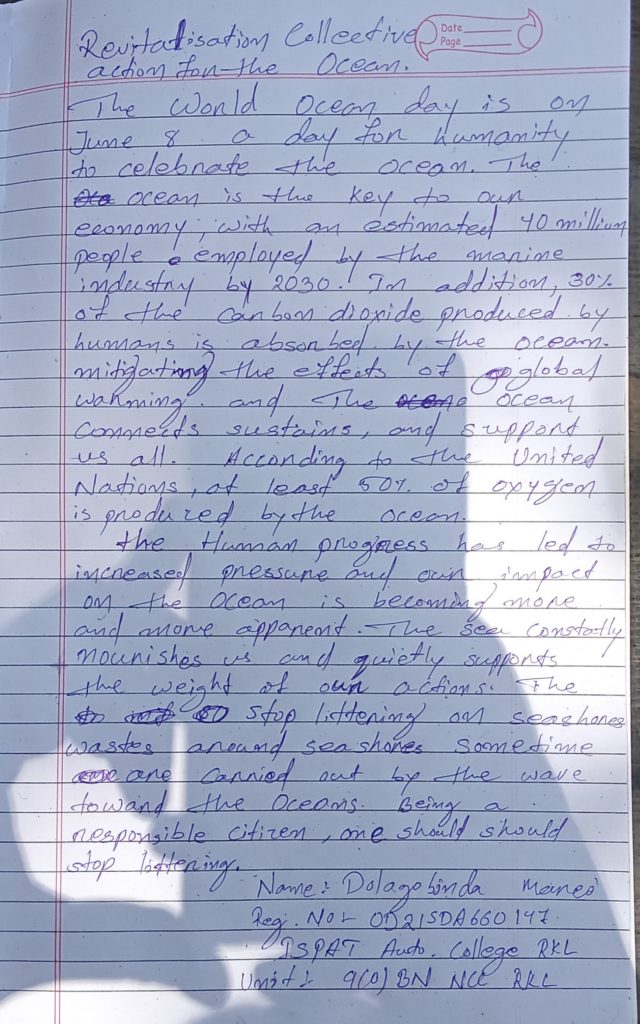 Revitalisation Collective
Date
Page
action for the Ocean.
The World Ocean day is on
June 8. a day for humanity
to celebrate the ocean. The
ocean is the key to our
economy, with an estimated 40 million
people employed by the marine
industry by 2030. In addition, 30%
of the carbon dioxide produced by
humans is absorbed by the ocean.
mitigating the effects of global
warming. and The ocean
connects sustains, and support
us all. According to the United
Nations, at least 50% of oxygen
is produced by the ocean.
the Human progress has led to
increased pressure and our impact
on the Ocean is becoming more
and more apparent. The sea constatly
nourishes us and quietly supports
the weight of our actions. The
stop littering on seashores
wastes around seashores sometime
are carried out by the wave
toward the Oceans. Being a
responsible citizen, one should should
stop littering.
Name:- Dolagobinda
Reg. No:- OD21SDA660147.
ISPAT Auto. College RKL
Unit:- 9(O) BN NCC RKL